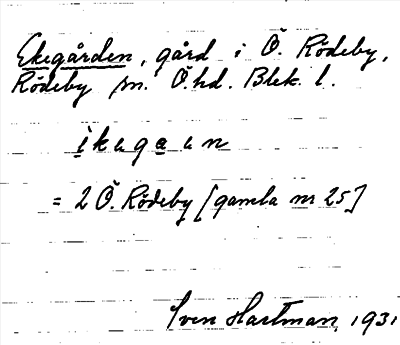 Ekegården, gård i Ö. Rödeby,
Rödeby sn. Ö.hd. Blek. l.
= 2 Ö. Rödeby [gamla nr 25]
Sven Hartman 1931